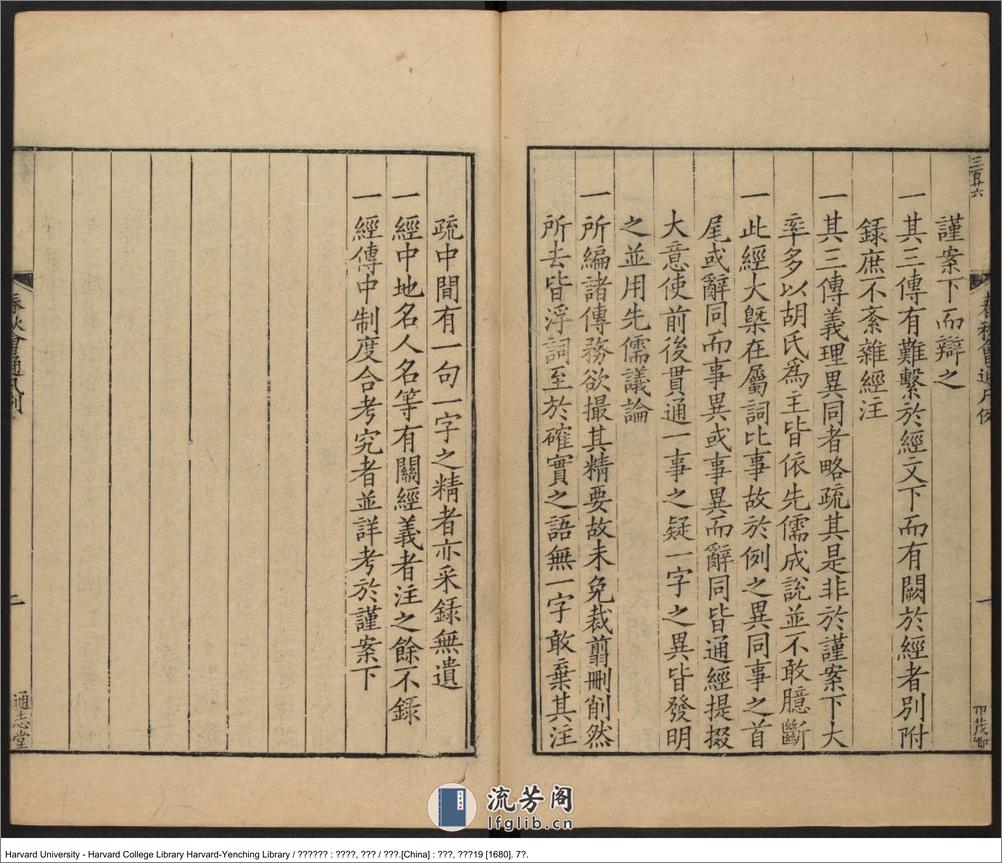 三百六
春秋會通凡例
一
謹案下而辯之
一其三傳有難繫於經文下而有闕於經者别附
錄庶不紊雜經注
一其三傳義理異同者略疏其是非於謹案下大
率多以胡氏爲主皆依先儒成說並不敢臆斷
一此經大槩在屬詞比事故於例之異同事之首
尾或辭同而事異或事異而辭同皆通經提掇
大意使前後貫通一事之疑一字之異皆發明
之並用先儒議論
一所編諸傳務欲撮其精要故未免裁翦刪削然
所去皆浮詞至於確實之語無一字敢棄其注
疏中間有一句一字之精者亦采錄無遺
一經中地名人名等有關經義者注之餘不錄
一經傳中制度合考究者並詳考於謹案下
春秋會通凡例
二
通志堂
流芳阁
lfglib.cn
Harvard University - Harvard College Library Harvard-Yenching Library / ?????? : ????, ??? / ???.[China] : ???, ???19 [1680]. 7?.